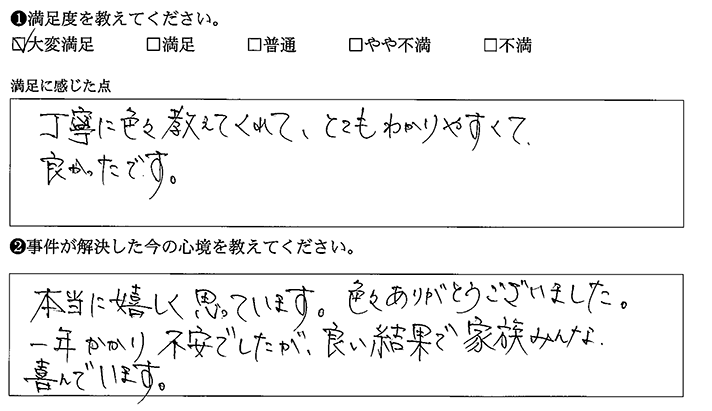 ❶満足度を教えてください。
☑大変満足 □満足 □普通 □やや不満 □不満
満足に感じた点
丁寧に色々教えてくれて、とてもわかりやすくて、
良かったです。
❷事件が解決した今の心境を教えてください。
本当に嬉しく思っています。色々ありがとうございました。
一年かかり不安でしたが、良い結果で家族みんな、
喜んでいます。